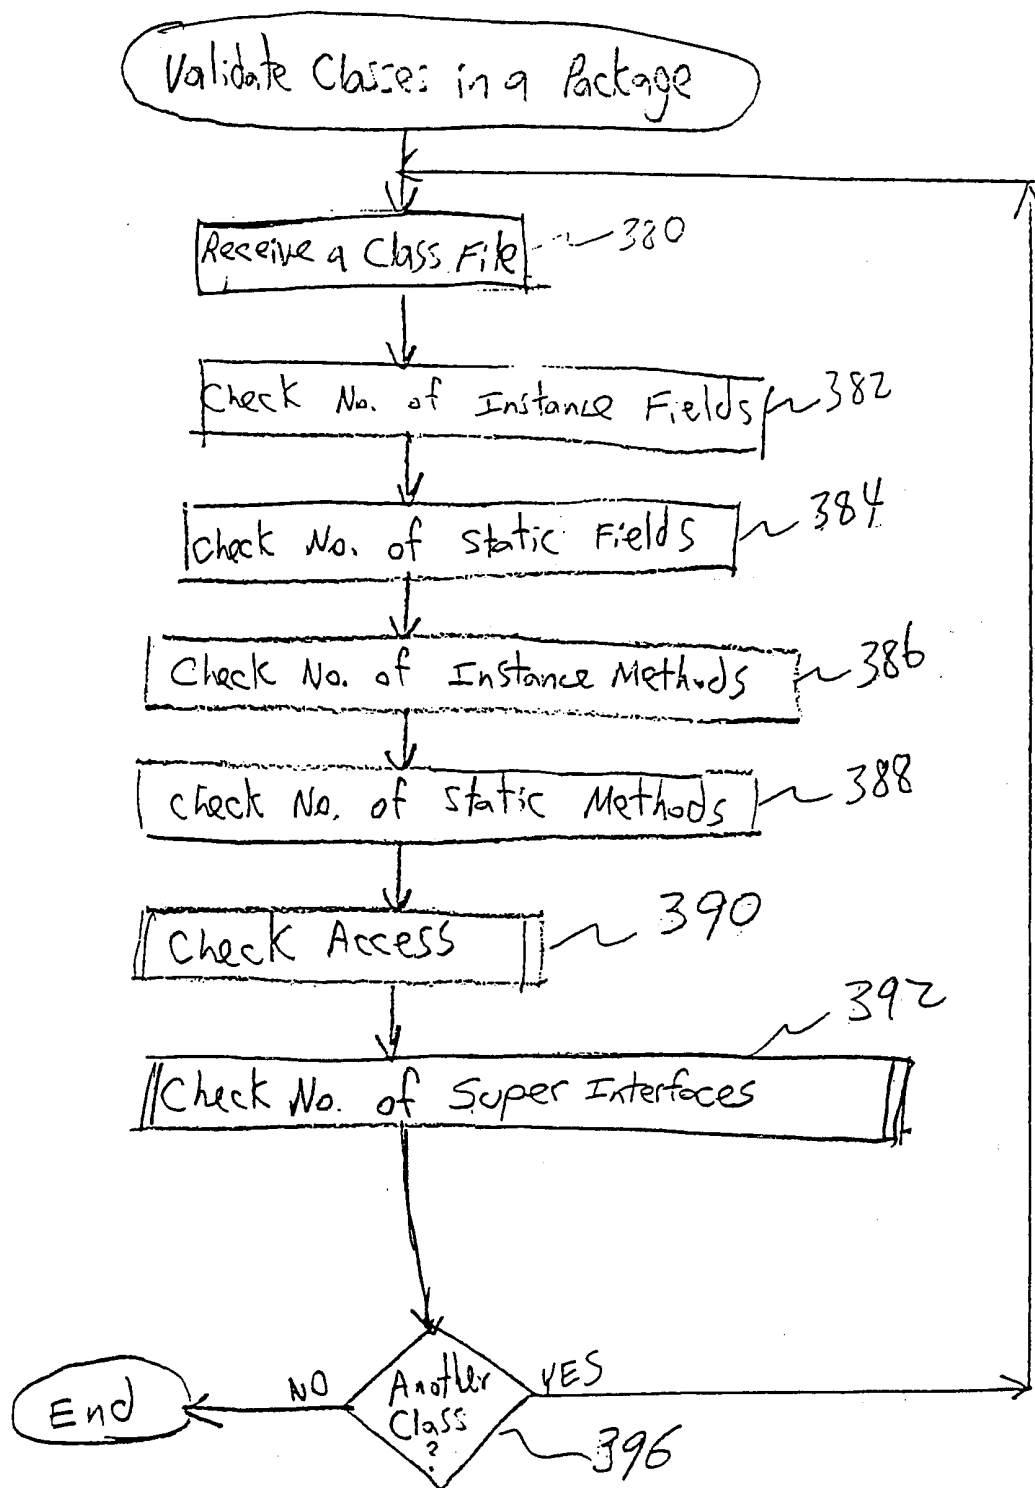 Validate Classes in a Package
Receive a Class File
380
Check No. of Instance Fields
382
Check No. of Static Fields
384
Check No. of Instance Methods
386
Check No. of Static Methods
388
Check Access
390
392
Check No. of Super Interfaces
Another
Class
?
NO
YES
End
396